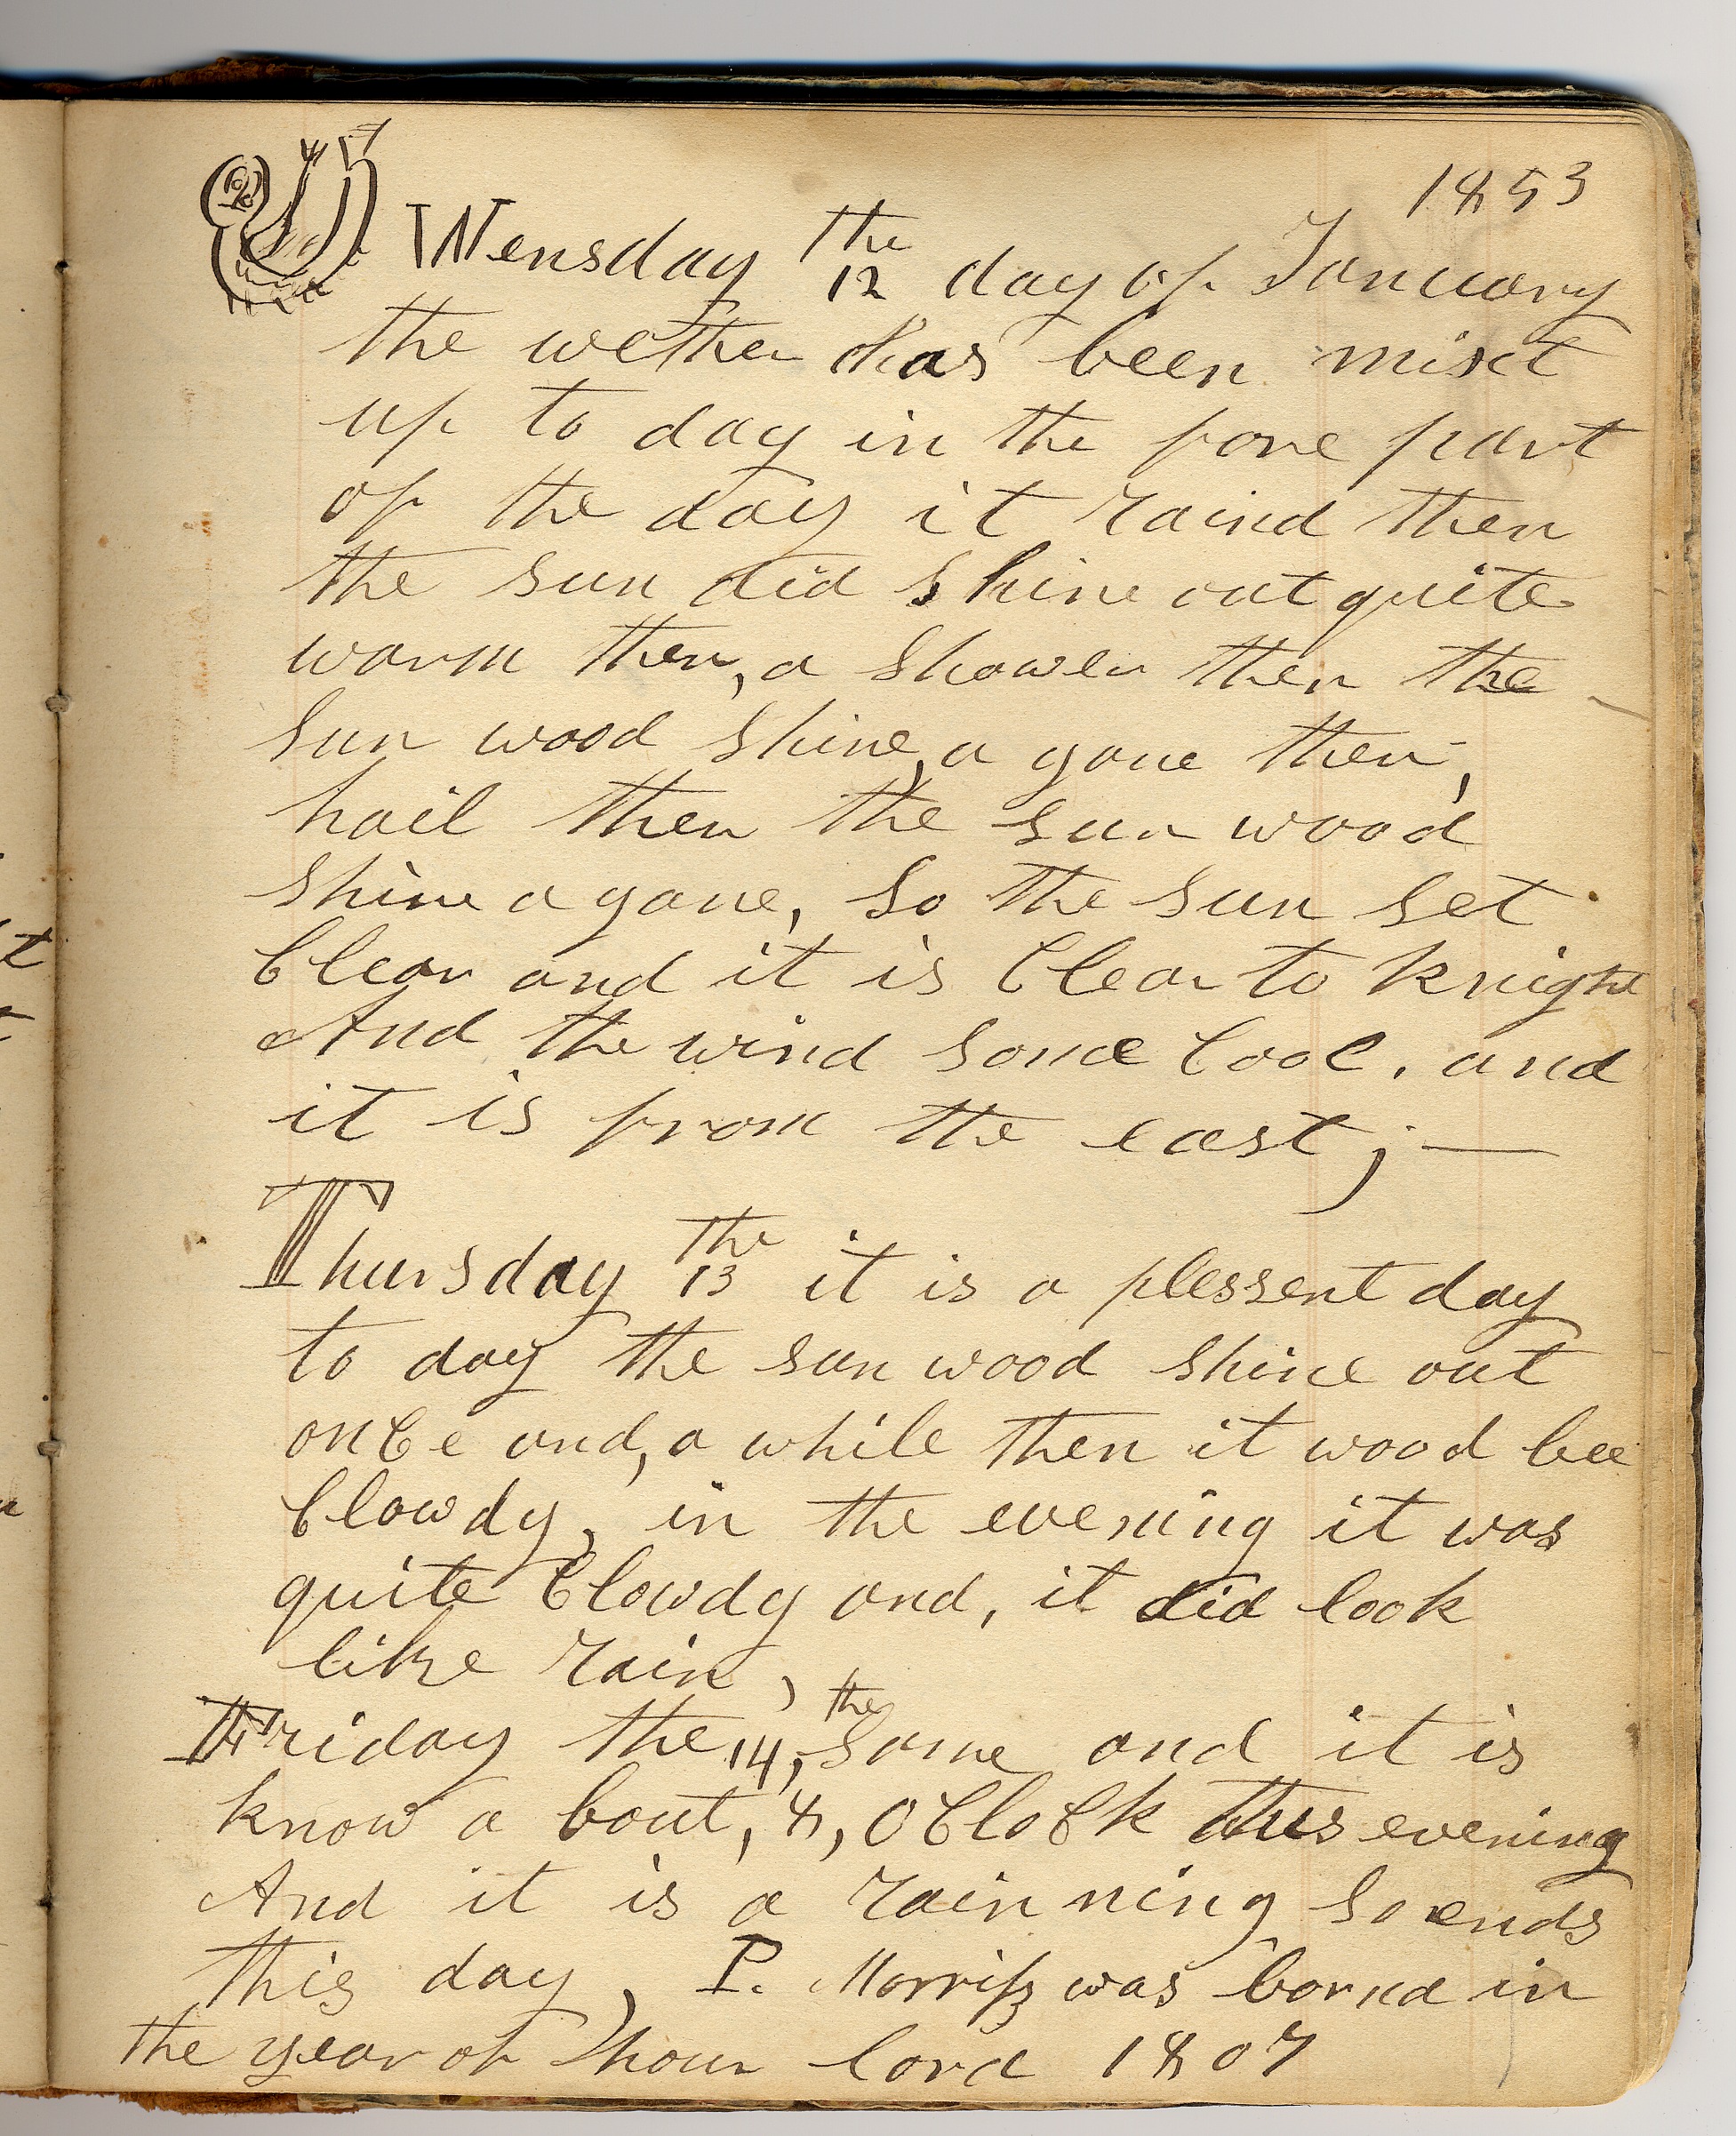 1853
Wensday the 12 day of January
the wether has been mixt
up to day in the fore part
of the day it raind then
the sun did shine out quite
warm then, a shower then the
sun wood shine, a gane then,
hail then the sun wood
shine a gane, So the sun set
Clear and it is Clear to knight
And the wind some Cool. and
it is from the east; —
Thursday the 13 it is a plessent day
to day the sun wood shine out
onCe and, a while then it wood bee
Clowdy, in the evening it was
quite Clowdy and, it did look
like rain,
Friday the 14, the same and it is
know a bout, 8, OCloCk this evening
And it is a rainning So ends
this day, P. Morriss was bornd in
the year of hour lord 1807